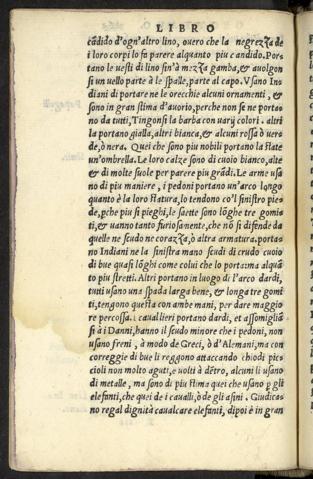 LIBRO
cãdido d'ogn'altro lino, ouero che la negrezza de
i loro corpi lo fa parere alquanto piu candido. Por-
tano le uesti di lino fin'à mezza gamba, & auolgon
si un uello parte à le spalle, parte al capo. Vsano In-
diani di portare ne le orecchie alcuni ornamenti, &
sono in gran stima d'auorio, perche non se ne porta-
no da tutti, Tingonsi la barba con uarij colori. altri
la portano gialla, altri bianca, & alcuni rossa ò uer-
de, ò nera. Quei che sono piu nobili portano la state
un'ombrella. Le loro calze sono di cuoio bianco, alte
& di molte suole per parere piu grãdi. Le arme usa
no di piu maniere, i pedoni portano un'arco longo
quanto è la loro statura, lo tendono co'l sinistro pie-
de, pche piu si pieghi, le saette sono lõghe tre gomi-
ti, & uanno tanto furiosamente, che nõ si difende da
quelle ne scudo ne corazza, ò altra armatura. porta-
no Indiani ne la sinistra mano scudi di crudo cuoio
di bue quasi lõghi come colui che lo porta: ma alquã
to piu stretti. Altri portano in luogo di l'arco dardi,
tutti usano una spada larga bene, & longa tre gomi
ti, tengono questa con ambe mani, per dare maggio
re percossa. i cauallieri portano dardi, et assomigliã
si à i Danni, hanno il scudo minore che i pedoni, non
usano freni, à modo de Greci, ò d'Alemani, ma con
correggie di bue li reggono attaccando chiodi pic-
cioli non molto aguti, e uolti à dẽtro, alcuni li usano
di metalle, ma sono di piu stima quei che usano p gli
elefanti, che quei de i caualli, ò de gli asini. Giudica-
no regal dignità caualcare elefanti, dipoi è in gran